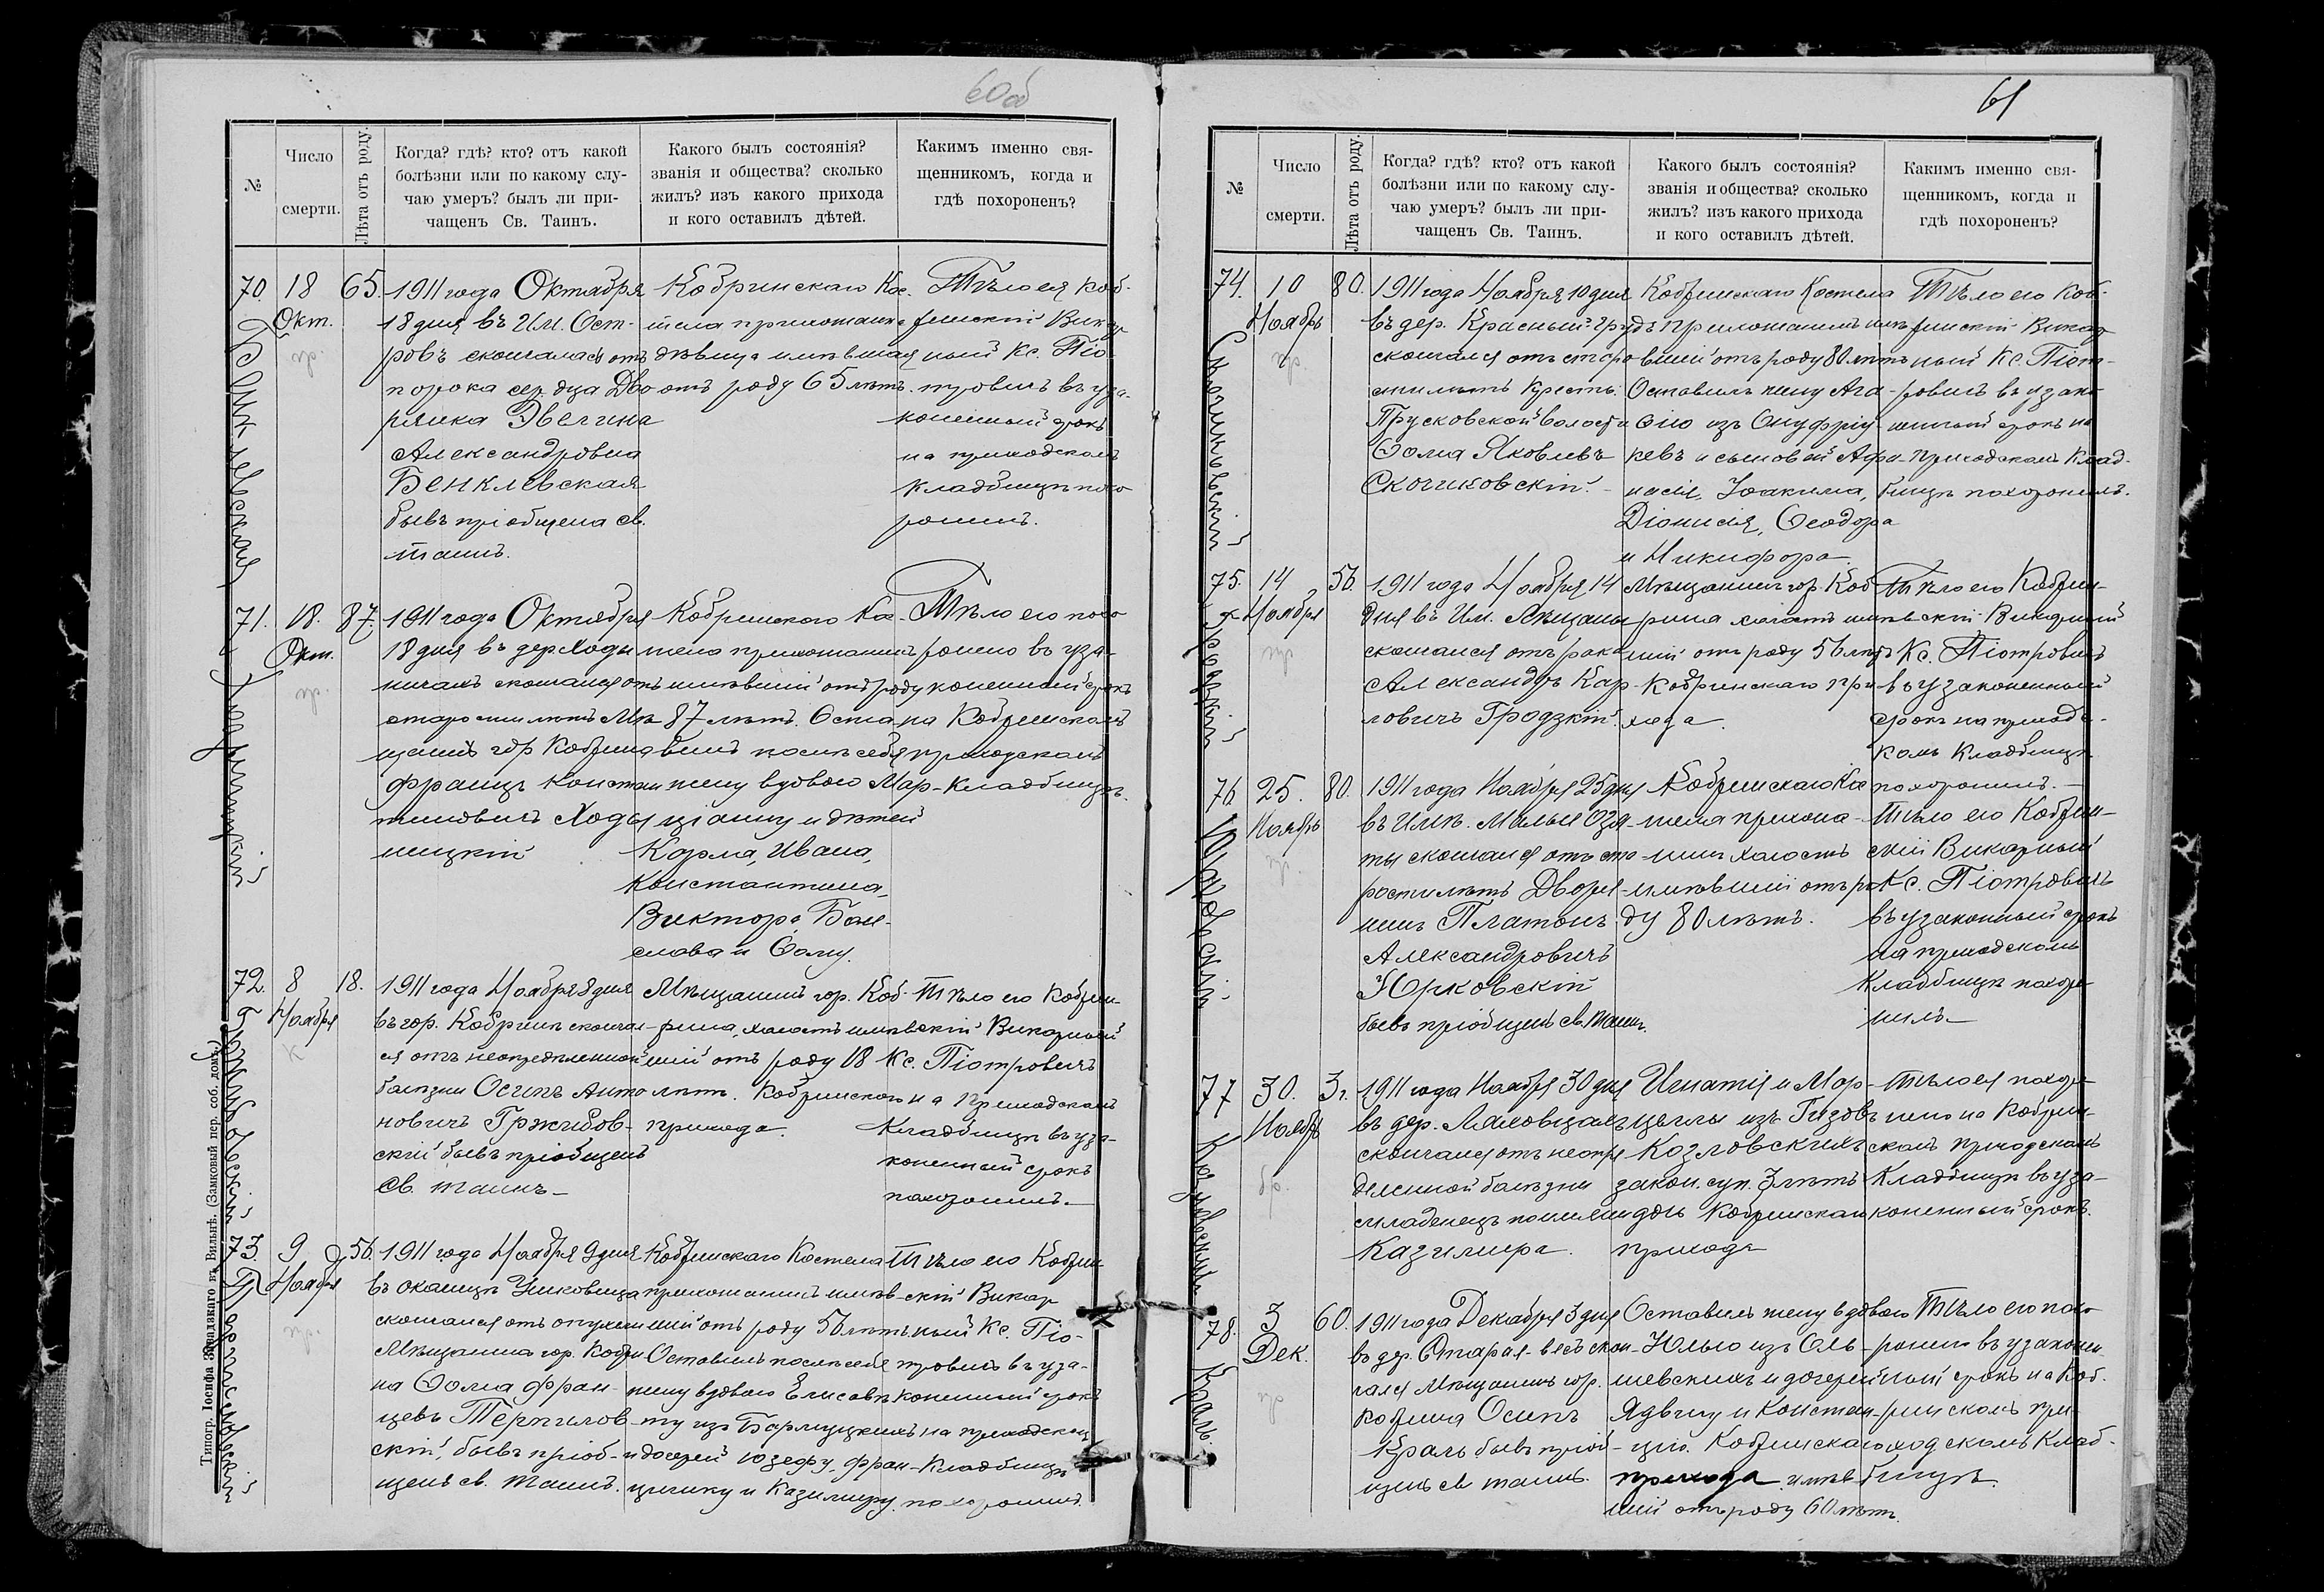 60об
№
Число
смерти.
Лѣта отъ роду.
Когда? гдѣ? кто? отъ какой
болѣзни или по какому слу-
чаю умеръ? былъ ли при-
чащенъ Св. Таинъ.
Какого былъ состоянія?
званія и общества? сколько
жилъ? изъ какого прихода
и кого оставилъ дѣтей.
Какимъ именно свя-
щенникомъ, когда и
гдѣ похороненъ?
70.
Бенклевская
18
Окт.
пр.
65.
1911 года Октября
18 дня въ Им. Ост-
ровъ скончалась отъ
порока сердца Дво
рянка Эвелина
Александровна
Бенклевская
бывъ пріобщена св.
таинъ.
Кобринскаго Ко-
стела прихожанка
дѣвица имѣвшая
отъ роду 65 лѣтъ.
Тѣло ея Коб-
ринскій Викар
ный Кс. Піо
тровичъ въ уза-
коненный срокъ
на приходскомъ
кладбищѣ похо
ронилъ.
71.
Ходыницкій
18.
Окт.
пр.
87.
1911 года Октября
18 дня въ дер Ходы
ничахъ скончался отъ
старости лѣтъ Мѣ
щанинъ гор Кобрина
Францъ Констан
тиновичъ Ходы
ницкій
Кобринского Ко-
стела прихожанинъ
имѣвшій отъ роду
87 лѣтъ. Оста
вилъ послѣ себя
жену вдовою Мар-
ціанну и дѣтей
Карла, Ивана,
Константина,
Виктора, Боле-
слава и Ѳому.
Тѣло его похо
ронено въ уза-
коненный срокъ
на Кобринскомъ
приходскомъ
кладбищѣ.
72.
Гржибовскій
8
Ноября
к
18.
1911 года Ноября 8 дня
въ гор. Кобринѣ сконча-
ся отъ неопредѣленной
болѣзни Осипъ Анто
новичъ Гржибов-
скій бывъ пріобщенъ
св. таинъ
Мѣщанинъ гор. Коб-
рина, холостъ имѣв
шій отъ роду 18
лѣтъ. Кобринского
прихода.
Тѣло его Кобрин-
скій Викарный
Кс. Піотровичъ
на приходскомъ
кладбищѣ въ уза-
коненный срокъ
похоронилъ.
73
Терпиловскій
9
Ноября
пр.
56.
1911 года Ноября 9 дня
скончался отъ опухоли
Мѣщанинъ гор. Кобри
на Ѳома Фран-
цевъ Терпилов-
скій, бывъ пріоб-
щенъ св. таинъ.
Кобринскаго Костела
прихожанинъ имѣв-
шій отъ роду 56 лѣтъ
Оставилъ послѣ себя
жену вдовою Елисаве
ту изъ
и дочерей Юзефу, Фран-
цишку и Казимиру
Тѣло его Кобрин
скій Викар
ный Кс. Піо-
тровичъ въ уза-
коненный срокъ
на приходскомъ
кладбищѣ
похоронилъ.
Типогр. Іосифа Завадзкаго въ Вильнѣ. (Замковый пер. соб. домъ.)
61
№
Число
смерти.
Лѣта отъ роду.
Когда? гдѣ? кто? отъ какой
болѣзни или по какому слу-
чаю умеръ? былъ ли при-
чащенъ Св. Таинъ.
Какого былъ состоянія?
званія и общества? сколько
жилъ? изъ какого прихода
и кого оставилъ дѣтей.
Какимъ именно свя-
щенникомъ, когда и
гдѣ похороненъ?
74.
10
Ноябрь
пр.
80.
1911 года Ноября 10 дня
въ дер. Красный-Грудъ
скончался отъ старо
сти лѣтъ Крестъ.
Прусковской волости
Ѳома Яковлевъ
Скочиковскій.
Кобринскаго Костела
прихожанинъ имѣ
вшій отъ роду 80 лѣтъ
Оставилъ жену Ага
ѳію изъ Онуфрію
кевъ и сыновей Афа-
насія, Іоакима,
Діонисія, Ѳеодора
и Никифора
Тѣло его Коб-
ринскій Викар
ный Кс. Піот-
ровичъ въ узако
ненный срокъ на
приходскомъ клад-
бищѣ похоронилъ.
75.
Гродзкій
14
Ноября
пр
56
1911 года Ноября 14
дня въ Им. Мѣщаны
скончался отъ рака
Александръ Кар-
ловичъ Гродзкій.
Мѣщанинъ гор. Коб
рина холостъ имѣв
шій отъ роду 56 лѣтъ
Кобринскаго при
хода.
Тѣло его Кобрин-
скій Викарный
Кс. Піотровичъ
въ узаконенный
срокъ на приходс-
комъ кладбищѣ
похоронилъ.
76
Юрковскій
25.
Ноябрь
пр.
80.
1911 года Ноября 25 дня
въ Имѣ. Малые Озя-
ты скончался отъ ста
рости лѣтъ Дворя-
нинъ Платонъ
Александровичъ
Юрковскій
бывъ пріобщенъ св. таинъ.
Кобринскаго Ко
стела прихожа-
нинъ холостъ
имѣвшій отъ ро
ду 80 лѣтъ.
Тѣло его Кобрин-
скій Викарный
Кс. Піотровичъ
въ узаконный срокъ
на приходскомъ
кладбищѣ похоро
нилъ
77
Козловскій
30.
Ноябрь
бр.
3г.
1911 года Ноября 30 дня
въ дер. Ляховцахъ
скончался отъ неопре
дѣленной болѣзни
младенецъ по имени
Казимира.
Игнатія и Мар-
целлы изъ Гиздовъ
Козловскихъ
закон. суп. 3 лѣтъ
дочь Кобринскаго
прихода
Тѣло ея похоро-
нено на Кобрин-
скомъ приходскомъ
кладбищѣ въ уза-
коненный срокъ.
78.
Краль.
3
Дек.
пр
60.
1911 года Декабря 3 дня
въ дер. Старая-весь скон-
чался Мѣщанинъ гор.
Кобрина Осипъ
Краль бывъ пріоб-
щенъ св таинъ.
Оставилъ жену вдовою
Юлію изъ Оль-
шевскихъ и дочерей
Ядвигу и Констан-
цію. Кобринскаго
прихода имѣв
шій отъ роду 60 лѣтъ.
Тѣло его похо
ронено въ узаконен
ный срокъ на Коб-
ринскомъ при-
ходскомъ клад-
бищѣ.